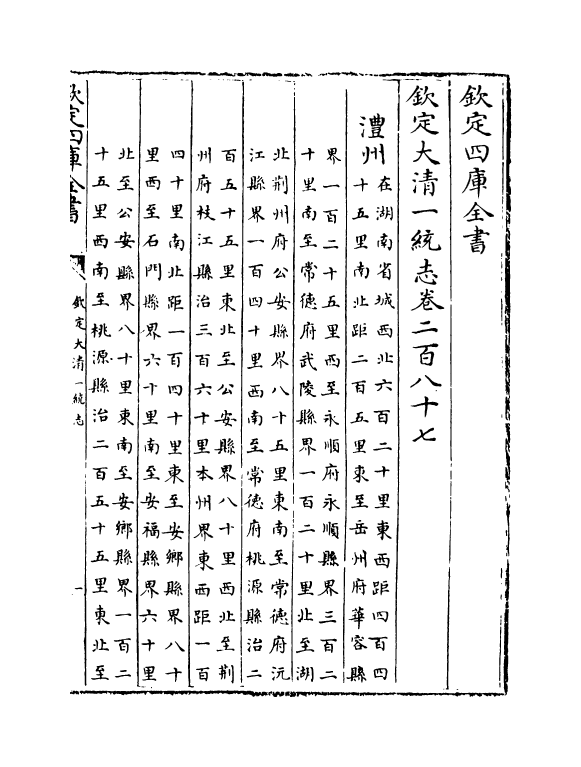 欽定四庫全書
欽定大清一統志卷二百八十七
澧州
在湖南省城西北六百二十里東西距四百四
十五里南北距二百五里東至岳州府華容縣
界一百二十五里西至永順府永順縣界三百二
十里南至常德府武陵縣界一百二十里北至湖
北荆州府公安縣界八十五里東南至常德府沅
江縣界一百四十里西南至常德府桃源縣治二
百五十五里東北至公安縣界八十里西北至荆
州府枝江縣治三百六十里本州界東西距一百
四十里南北距一百四十里東至安鄉縣界八十
里西至石門縣界六十里南至安福縣界六十里
北至公安縣界八十里東南至安鄉縣界一百二
十五里西南至桃源縣治二百五十五里東北至
欽定四庫全書
欽定大清一統志
一